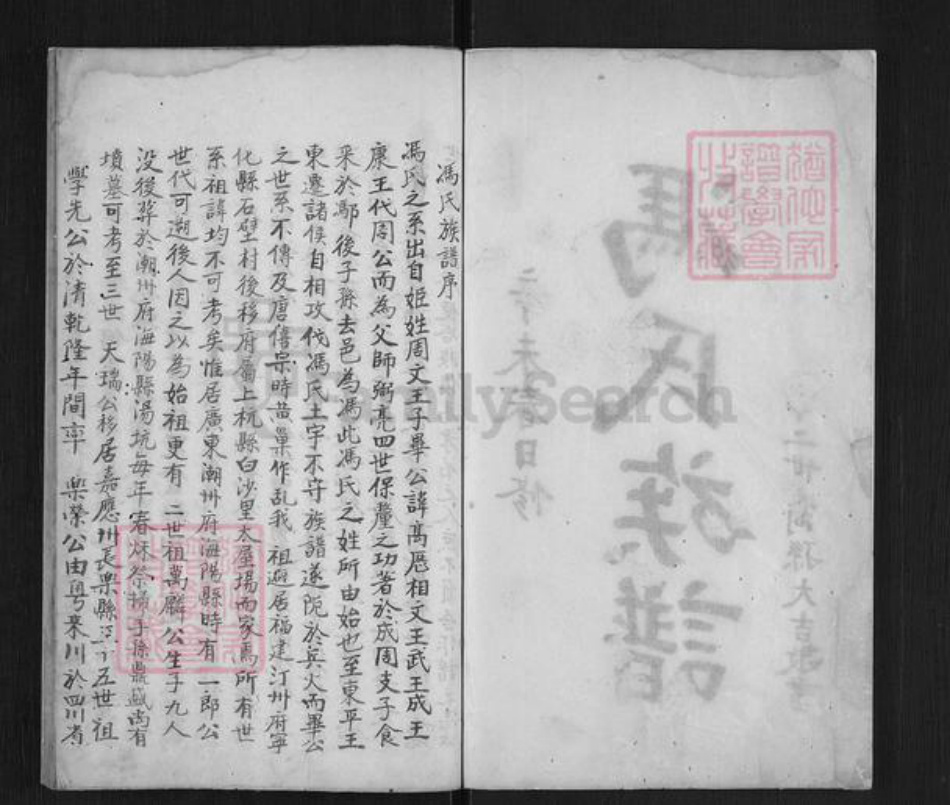 馮氏族譜
馮氏族譜序
馮氏之系出自姬姓周文王子畢公諱高歷相文王武王成王
康王代周公而為父師弼亮四世保釐之功著於成周支子食
采於鄢後子孫去邑為馮此馮氏之姓所由始也至東平王
東遷諸侯自相攻伐馮氏土宇不守族譜遂阨於兵火而畢公
之世系不傳及唐僖宗時黃巢作乱我 祖避居福建汀州府寧
化縣石壁村後移府屬上杭縣白沙里大屋場而家焉所有世
系祖諱均不可考矣惟居廣東潮州府海陽縣時有一郎公
世代可遡後人因之以為始祖更有 二世祖萬麟公生子九人
没後葬於潮州府海陽縣湯坑每年春秋祭掃子孫鼎盛尚有
墳墓可考至三世 天瑞公移居嘉應州長樂縣 十五世祖
學先公於清乾隆年間率 樂榮公由粵來川於四川省
FamilySearch